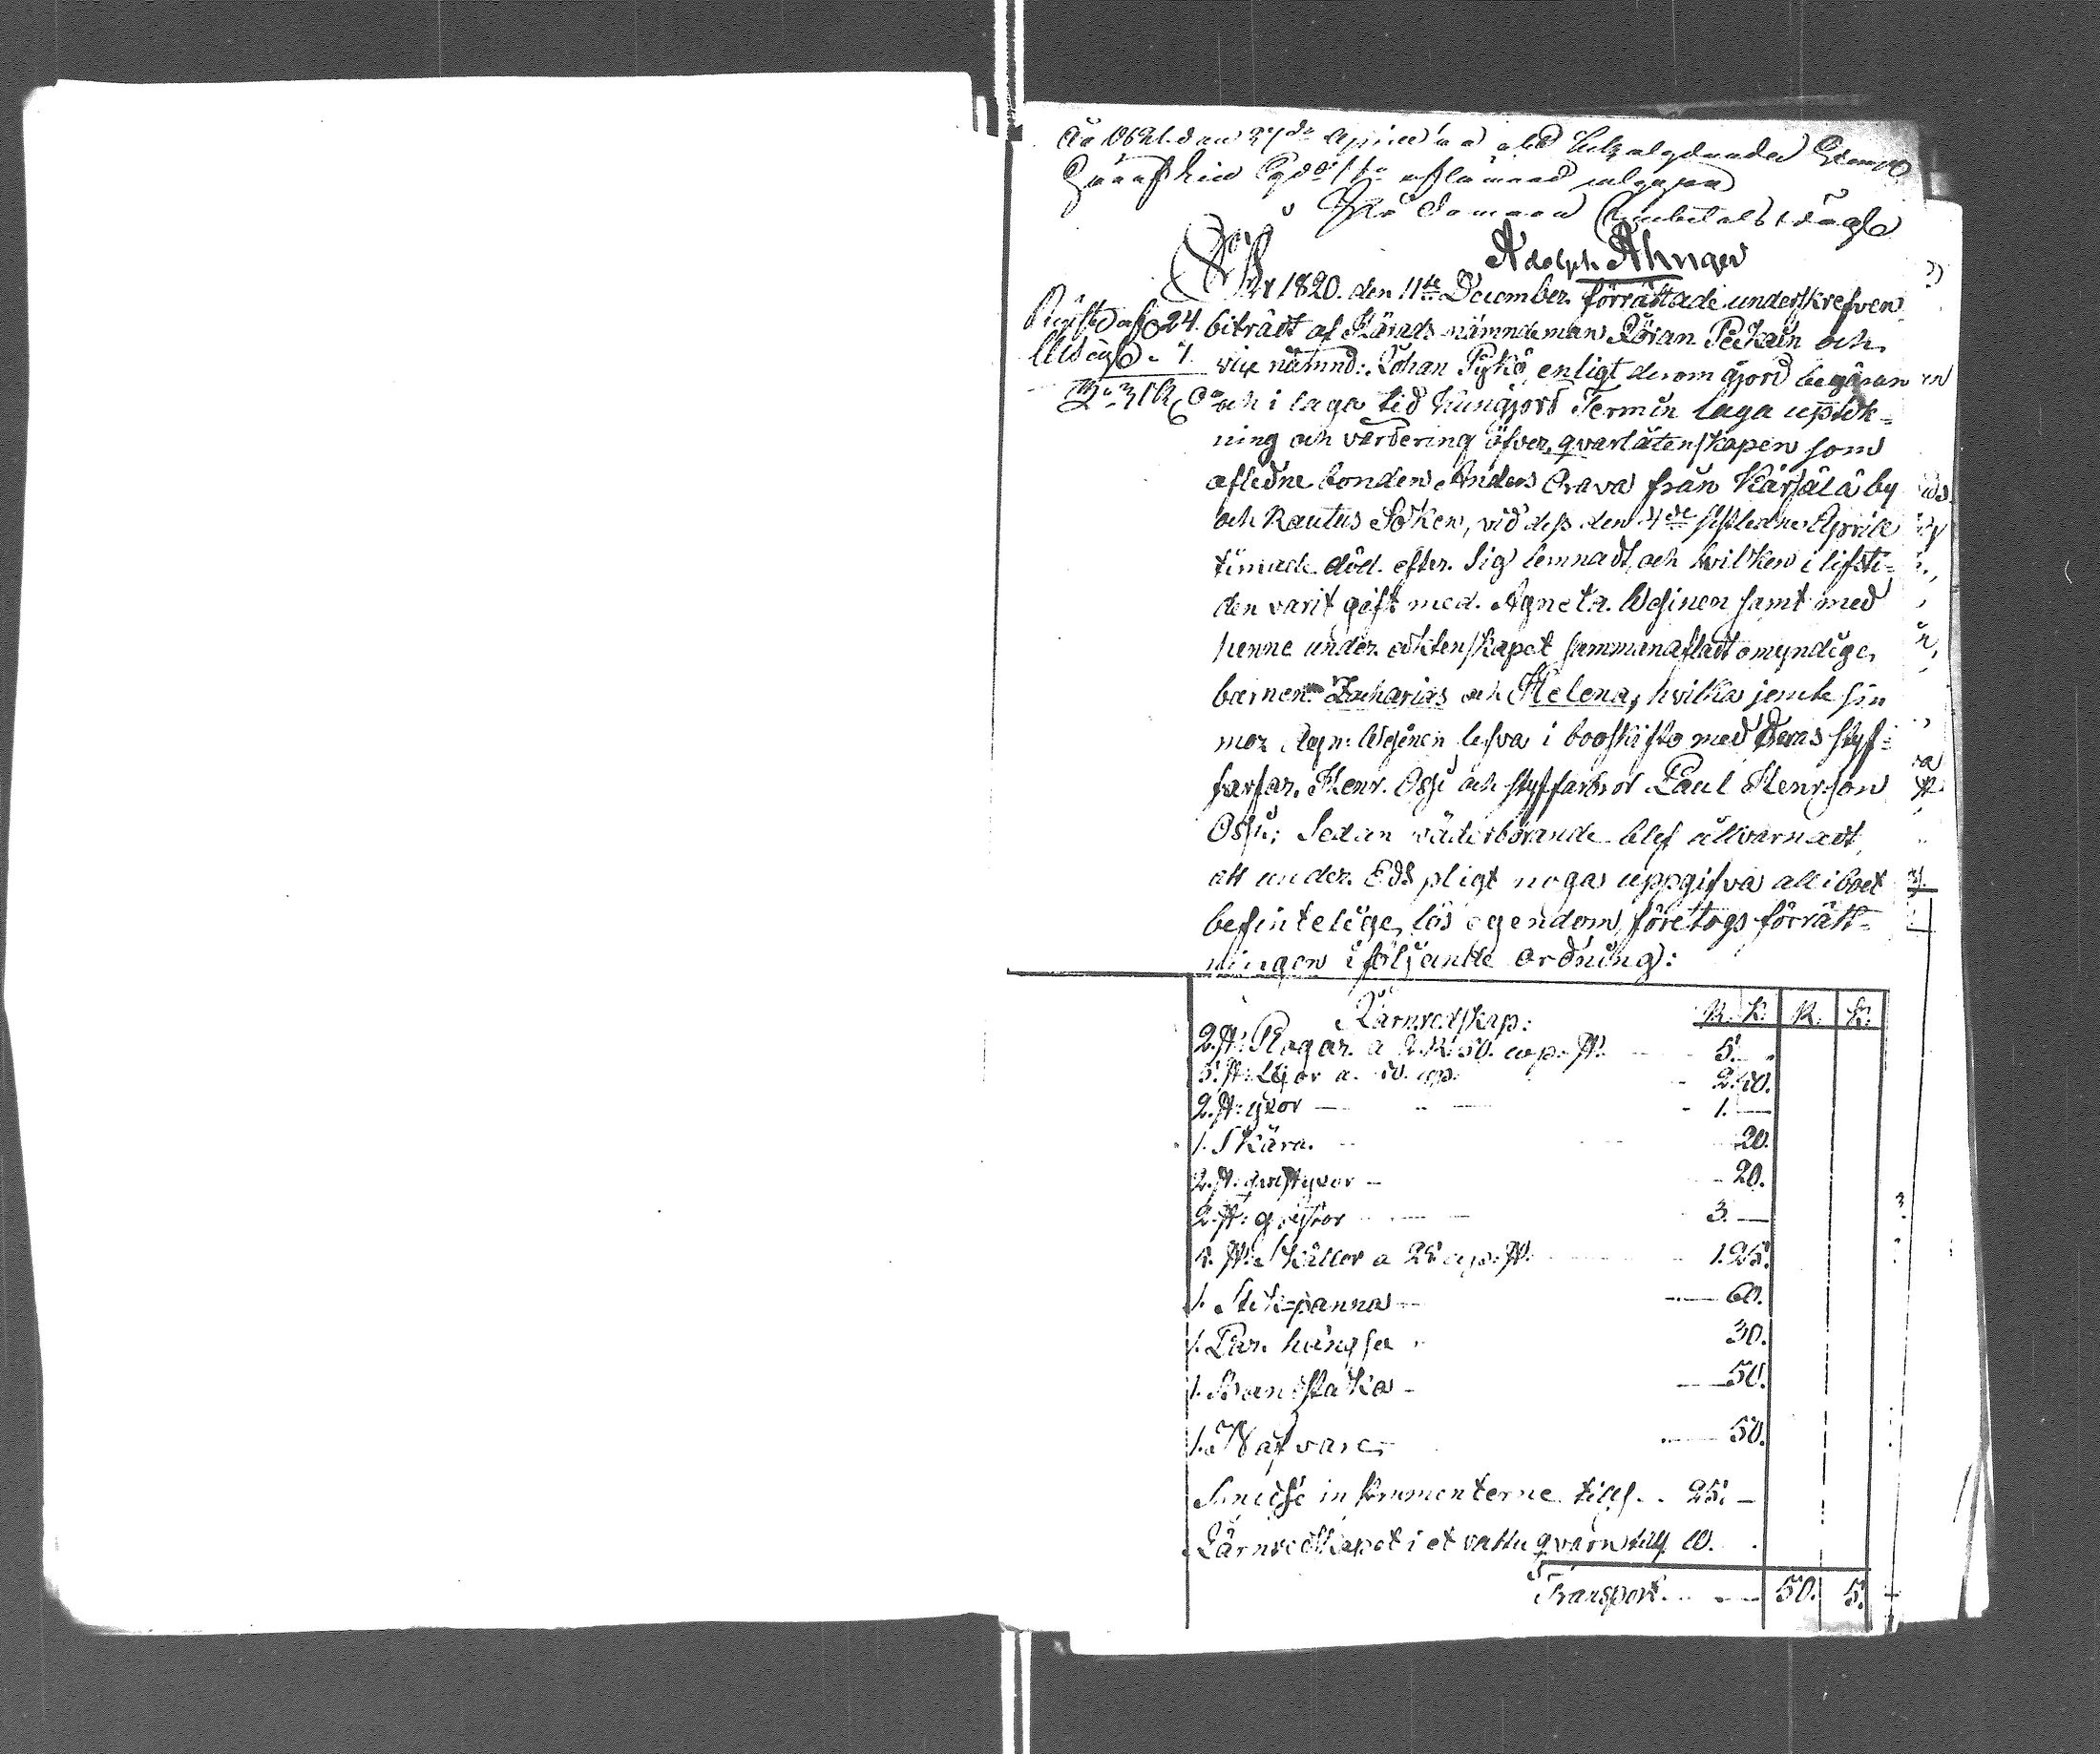 År 1821 den 27de April
På Domare Embetets vägar
Adolph Ahnger
År 1820. den 11te December förrättade underskrefven
biträdt af Härads nämndeman Jöran Peikain och
vice nämnd: Johan Pykö, enligt derom gjord begäran
och i laga tid kungjord Termin laga uptek-
ning och värdering öfver qvarlåtenskapen som
afledne bonden Anders Orava från Kärsälä by
och Rautus Soken, vid dess den 4de sistledne April
timade död efter sig lemnadt, och hvilken i lifsti-
den varit gift med Agneta Wesinen samt med
henne under äktenskapet sammanafladt omyndige
barnen Zacharias och Helena, hvilka jemte sin
mor Agn: Wesinen lefva i booskifto med deras styf-
farfar Henr. Ossi och styffarbror Paul Henrson
Ossi; Sedan väderbörande blef allvarnadt,
att under Eds pligt noga uppgifva all i boet
befintelige lös egendom, företogs förrätt-
ningen i följande ordning:
Järnredskap: R. K. R. K.
2. st: Plogar a 2 R: 50. cop. st. 5.
5. st: Lijor a. 50. cop. 2.50.
2. st: yxor 1. —
1. Skära. 20.
2. st. qvistyxor — 20.
2. st: grytor 3. —
5. st. Skållor a 25 cop. st. 1.25.
1. Stek-panna — 60.
1. Par hängsa 30.
1. Brandstaka — 50.
1. Nafvare 50.
Smidse instrumenterne tills. 25. —
Järnredskapet i et vattu qvarn till 10.
Transport. 50. 5.